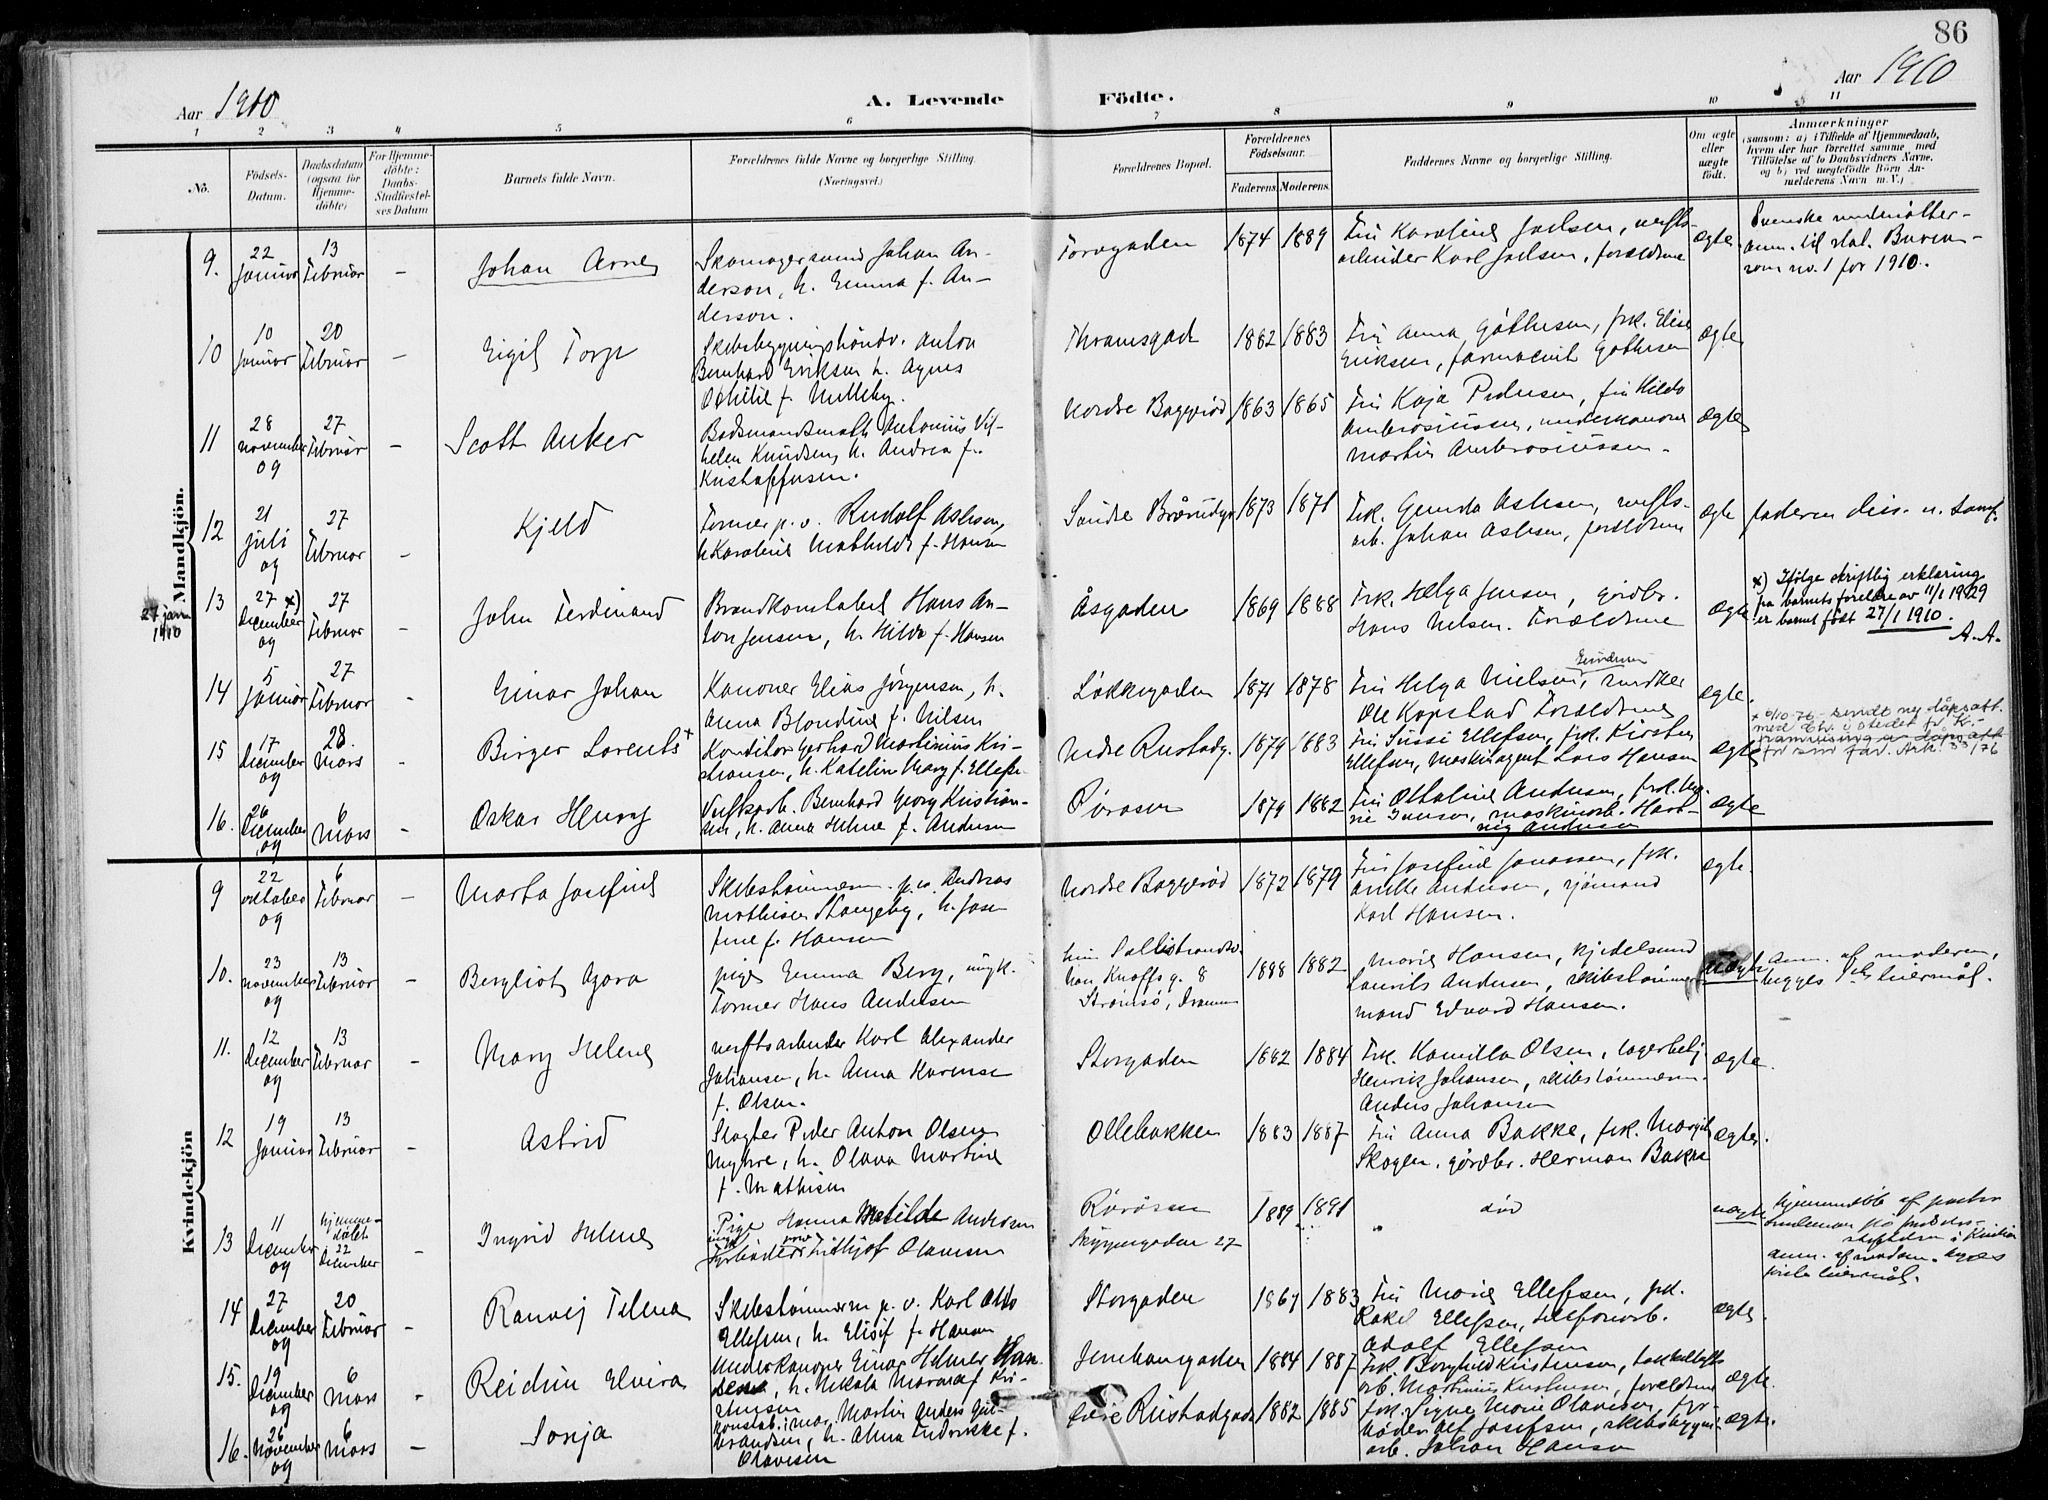 86
Aar 1910
A. Levende
Födte.
Aar 1910
1 2 3 4 5 6 7 8 9 10 11
No.
Födsels-
Datum.
Daabsdatum
(ogsaa for
Hjemme-
döbte)
For Hjemme-
döbte:
Daabs-
Stadfæstel-
ses Datum
Barnets fulde Navn.
Forældrenes fulde Navne og borgerlige Stilling.
(Næringsvei.)
Forældrenes Bopæl.
Forældrenes
Födselsaar.
Faderens. Moderens.
Faddernes Navne og borgerlige Stilling.
Om ægte
eller
uægte
födt.
Anmærkninger
(saasom: a) i Tilfælde af Hjemmedaab,
hvem der har forrettet samme, med
Tilföielse af to Daabsvidners Navne,
og b) ved uægtefödte Börn An-
melderens Navn m. V.)
Mandkjön.
9.
22
Januar
13
Februar
-
Johan Arne
Skomagersvend Johan An-
derson, h. Emma f. An-
derson.
Torvgaden
1874 1889
Fru Karoline Joelsen, verfts-
arbeider Karl Joelsen, forældrene
ægte
Svenske undersåtter -
anm. til stat. Burea-
som no. 1 for 1910.
10
10
Januar
20
Februar
-
Eigil Torp
Skibsbygningshåndv. Anton
Bernhard Eriksen h. Agnes
Othilie f. Melleby.
Thranesgad
1882 1883
Fru Anna Gåthesen, frk. Elise
Eriksen, farmaceut Gåthesen
ægte
11
28
november
09
27
Februar
-
Scott Anker
Bådsmandsmath Antonius Vil-
helm Knudsen, h. Andrea f.
Kristoffersen.
Nordre Baggerød
1863 1865
Fru Kaja Pedersen, fru Hilda
Ambrosiussen, underkanoner
Martin Ambrosiussen.
ægte
12
21
juli
09
27
Februar
-
Kjeld
Former p. v. Rudolf Aslesen,
h. Karoline Mathilde f. Hansen
Søndre Brårudg.
1873 1871
Frk. Gunda Aslesen, verfts-
arb. Johan Aslesen, forældrene
ægte
faderen diss. u. samf.
27 jan
1910
13
27 x)
December
09
27
Februar
-
John Ferdinand
Brandkonstabel Hans An-
ton Jensen, h. Hilda f. Hansen
Åsgaden
1869 1888
Frk. Helga Jensen, gårdbr.
Hans Nilsen. Forældrene
ægte
x) Ifølge skriftlig erklæring
fra barnets foreldre av 11/1 1929
er barnet født 27/1 1910.
A. A.
14
5
Januar
27
Februar
-
Einar Johan
Kanoner Elias Jørgensen, h.
Anna Blondine f. Nilsen
Løkkegaden
1871 1878
Fru Helga Nielsen, snedker
Ole Kopstad Forældrene
ægte.
15
17
December
09
28.
Mars
Birger Lorents +
Konditor Gerhard Martinius Kri-
stiansen, h. Kateline Mary f. Ellefse
Nedre Rustadg.
1879 1883
Fru Sussi Ellefsen, frk. Kirsten
Ellefsen, maskinagent Lars Hansen
ægte
+ 6/10-76 sendt ny dåpsatt.
16.
26
December
09
6
Mars
-
Oskar Henry
Verftsarb. Bernhard Georg Kristian-
sen, h. Anna Helene f. Andersen
Røråsen
1879 1882
Fru Ottoline Andersen,
maskinarb. Hart-
vig Andersen
ægte
Kvindekjön
9
22
oktober
09
6
Februar
-
Marta Josefine
Skibstømmerm. p. v. Andreas
Mathisen Stangeby, h. Jose
fine f. Hansen
Nordre Baggerød
1872 1879
Fru Josefine Jonassen, frk.
Andersen, sjømand
Karl Hansen.
ægte.
10.
23
november
09
13
Februar
-
Bergliot Agora
pige Emma Berg, ungk.
Former Hans Andersen
han Knoffsg. 8
Strømsø, Drammen
1888 1882
Marie Hansen, kjedelsmed
Laurits Andersen, skibstømmer
mand Edvard Hansen.
uægte
anm. af moderen,
begges 1ste leiermål.
11.
12
December
09
13
Februar
-
Mary Helene
verftsarbeider Karl Alexander
Johansen, h. Anna Karense
f. Olsen.
Storgaden
1882 1884
Frk. Kamilla Olsen, lagerbetj.
Henrik Johansen, skibstømmerm.
Anders Johansen
ægte.
12
19
Januar
13
Februar
-
Astrid
Slagter Peder Anton Olsen
Myhre, h. Olava Martine
f. Mathisen
Ollebakken
1883 1887
Fru Anna Bakke, frk. Margit
Skogen, gårdbr. Herman Bakke
ægte.
13
11
December
09
hjemme-
døbt
22
December
-
Ingrid Helene
Pige Hanna Matilde Andersen
ungk.
Fyrbøder Fridtjof Olavesen
Røråsen
Skippergaden 27
1889 1891
"
død
uægte
hjemmedøbt af pastor
anm. af moderen. begges
første leiermål.
14
27
December
09
20
Februar
-
Ranvej Telma
Skibstømmerm. p. v. Karl Otto
Ellefsen, h. Elisif f. Hansen
Storgaden
1867 1883
Fru Marie Ellefsen, frk.
Rakel Ellefsen, telefonarb.
Adolf Ellefsen
ægte.
15.
19
December
09
6
Mars
-
Reidun Elvira
Underkanoner Einar Helmer Han-
sen, h. Nikola Marara f. Kri-
stensen
Jernbanegaden
1884 1887
Frk. Borghild Kristensen, takkellofts
arb. Martinius Kristensen, forældrene
ægte.
16.
26
November
09
6
Mars
-
Sonja
konstab. i mar. Martin Anders Gul-
brandsen, h. Alma Fredrikke f.
Olavesen
Øvre Rustadgade
1882 1885
Frk. Signe Marie Olavesen, fyr-
bøder Alf Josefsen, skibsbygnin-
arb. Johan Hansen
ægte.